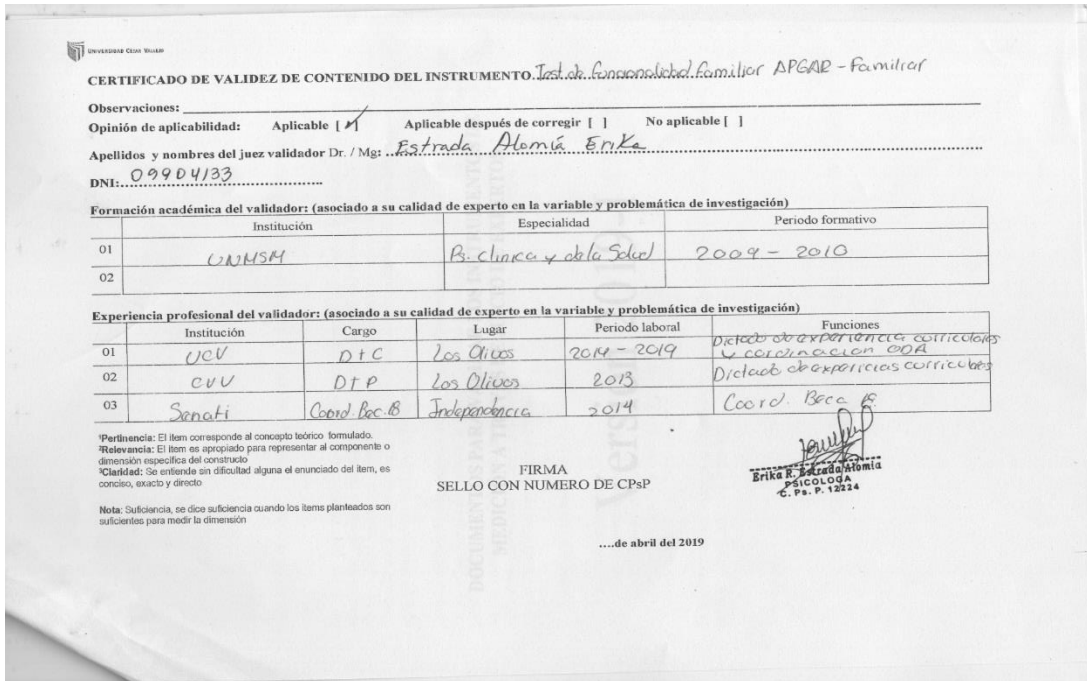 UNIVERSIDAD CÉSAR VALLEJO
CERTIFICADO DE VALIDEZ DE CONTENIDO DEL INSTRUMENTO. Test de Funcionalidad Familiar APGAR - Familiar
Observaciones:
Opinión de aplicabilidad: Aplicable [✓] Aplicable después de corregir [ ] No aplicable [ ]
Apellidos y nombres del juez validador Dr. / Mg: Estrada Alomía Erika
DNI: 09904133
Formación académica del validador: (asociado a su calidad de experto en la variable y problemática de investigación)
Institución Especialidad Periodo formativo
01 UNMSM Ps. clinica y de la Salud 2009 - 2010
02
Experiencia profesional del validador: (asociado a su calidad de experto en la variable y problemática de investigación)
Institución Cargo Lugar Periodo laboral Funciones
01 UCV DTC Los Olivos 2014 - 2019 Dictado de experiencia curriculares y cordinacion
02 CUV DTP Los Olivos 2013 Dictado de experiencias curriculares
03 Senati Coord. Bec. 18 Independencia 2014 Coord. Beca 18
¹Pertinencia: El item corresponde al concepto teórico formulado.
²Relevancia: El item es apropiado para representar al componente o
dimensión específica del constructo
³Claridad: Se entiende sin dificultad alguna el enunciado del item, es
conciso, exacto y directo
Nota: Suficiencia, se dice suficiencia cuando los items planteados son
suficientes para medir la dimensión
FIRMA
SELLO CON NUMERO DE CPsP
Erika R. Estrada Alomia
PSICOLOGA
C. Ps. P. 12224
....de abril del 2019